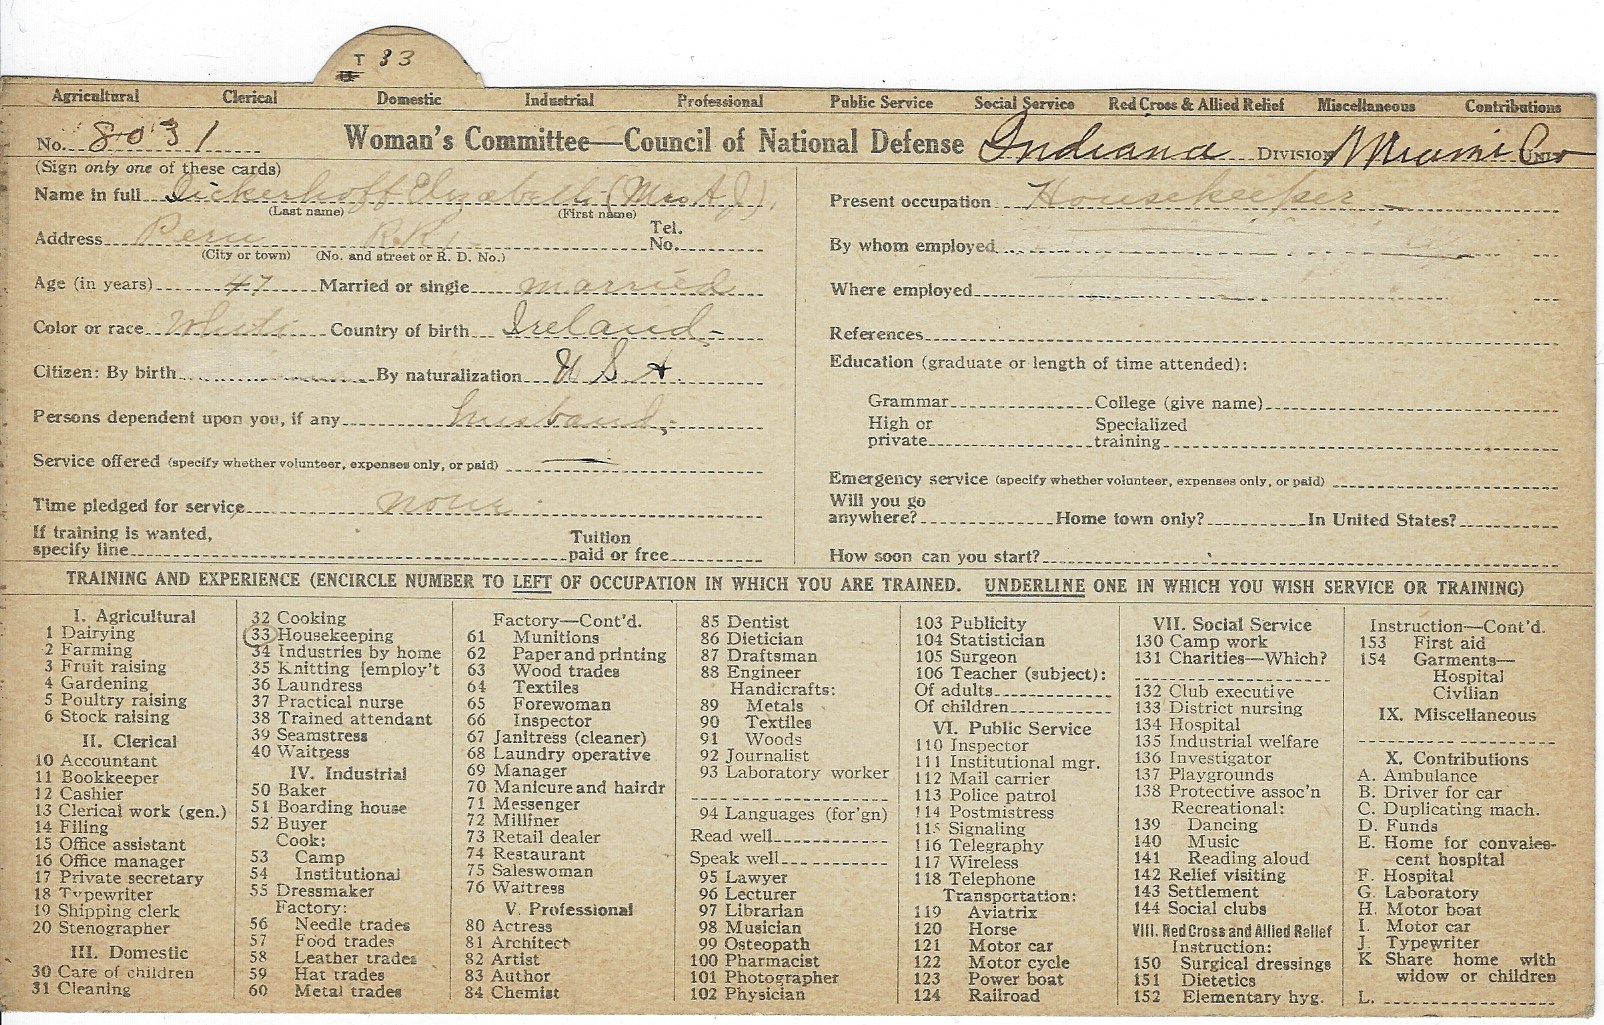 T 33
Agricultural Clerical Domestic Industrial Professional Public Service Social Service Red Cross & Allied Relief Miscellaneous Contributions
No. 8031 Woman's Committee—Council of National Defense Indiana Division Miami Co Unit
(Sign only one of these cards)
Name in full Dickerhoff Elizabeth (Mrs A.J.)
(Last name) (First name)
Address Peru R.R. Tel. No.
(City or town) (No. and street or R. D. No.)
Age (in years) 47 Married or single married
Color or race White Country of birth Ireland
Citizen: By birth By naturalization U S A
Persons dependent upon you, if any husband
Service offered (specify whether volunteer, expenses only, or paid)
Time pledged for service none
If training is wanted, specify line Tuition paid or free
Present occupation Housekeeper
By whom employed
Where employed
References
Education (graduate or length of time attended):
Grammar College (give name)
High or private Specialized training
Emergency service (specify whether volunteer, expenses only, or paid)
Will you go anywhere? Home town only? In United States?
How soon can you start?
TRAINING AND EXPERIENCE (ENCIRCLE NUMBER TO LEFT OF OCCUPATION IN WHICH YOU ARE TRAINED. UNDERLINE ONE IN WHICH YOU WISH SERVICE OR TRAINING)
I. Agricultural
1 Dairying
2 Farming
3 Fruit raising
4 Gardening
5 Poultry raising
6 Stock raising
II. Clerical
10 Accountant
11 Bookkeeper
12 Cashier
13 Clerical work (gen.)
14 Filing
15 Office assistant
16 Office manager
17 Private secretary
18 Typewriter
19 Shipping clerk
20 Stenographer
III. Domestic
30 Care of children
31 Cleaning
32 Cooking
33 Housekeeping
34 Industries by home
35 Knitting [employ't
36 Laundress
37 Practical nurse
38 Trained attendant
39 Seamstress
40 Waitress
IV. Industrial
50 Baker
51 Boarding house
52 Buyer
Cook:
53 Camp
54 Institutional
55 Dressmaker
Factory:
56 Needle trades
57 Food trades
58 Leather trades
59 Hat trades
60 Metal trades
Factory—Cont'd.
61 Munitions
62 Paper and printing
63 Wood trades
64 Textiles
65 Forewoman
66 Inspector
67 Janitress (cleaner)
68 Laundry operative
69 Manager
70 Manicure and hairdr
71 Messenger
72 Milliner
73 Retail dealer
74 Restaurant
75 Saleswoman
76 Waitress
V. Professional
80 Actress
81 Architect
82 Artist
83 Author
84 Chemist
85 Dentist
86 Dietician
87 Draftsman
88 Engineer
Handicrafts:
89 Metals
90 Textiles
91 Woods
92 Journalist
93 Laboratory worker
94 Languages (for'gn)
Read well
Speak well
95 Lawyer
96 Lecturer
97 Librarian
98 Musician
99 Osteopath
100 Pharmacist
101 Photographer
102 Physician
103 Publicity
104 Statistician
105 Surgeon
106 Teacher (subject):
Of adults
Of children
VI. Public Service
110 Inspector
111 Institutional mgr.
112 Mail carrier
113 Police patrol
114 Postmistress
115 Signaling
116 Telegraphy
117 Wireless
118 Telephone
Transportation:
119 Aviatrix
120 Horse
121 Motor car
122 Motor cycle
123 Power boat
124 Railroad
VII. Social Service
130 Camp work
131 Charities—Which?
132 Club executive
133 District nursing
134 Hospital
135 Industrial welfare
136 Investigator
137 Playgrounds
138 Protective assoc'n
Recreational:
139 Dancing
140 Music
141 Reading aloud
142 Relief visiting
143 Settlement
144 Social clubs
VIII. Red Cross and Allied Relief
Instruction:
150 Surgical dressings
151 Dietetics
152 Elementary hyg.
Instruction—Cont'd.
153 First aid
154 Garments—
Hospital
Civilian
IX. Miscellaneous
X. Contributions
A. Ambulance
B. Driver for car
C. Duplicating mach.
D. Funds
E. Home for convales-
cent hospital
F. Hospital
G. Laboratory
H. Motor boat
I. Motor car
J. Typewriter
K Share home with
widow or children
L.